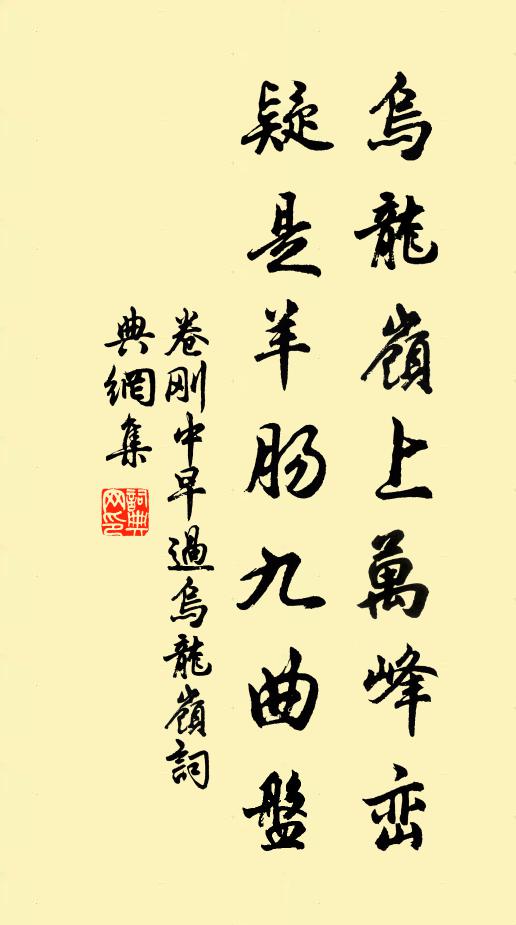 烏龍嶺上萬峰峦
疑是羊肠九曲盤
卷刚中早過烏龍嶺詞
典網集
詞典网印